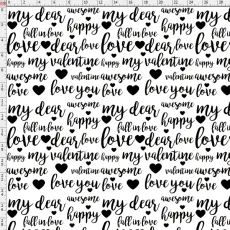 my dear awesome my dear awesome
fall in love happy fall in love happy
love dear love love dear love
happy my valentine happy my valentine happy
awesome valentine awesome valentine awesome
love love you love love you love
my dear awesome my dear awesome
fall in love happy fall in love happy
love dear love love dear love
happy my valentine happy my valentine happy
awesome valentine awesome valentine awesome
love love you love love you love
my dear awesome my dear awesome
fall in love happy fall in love happy